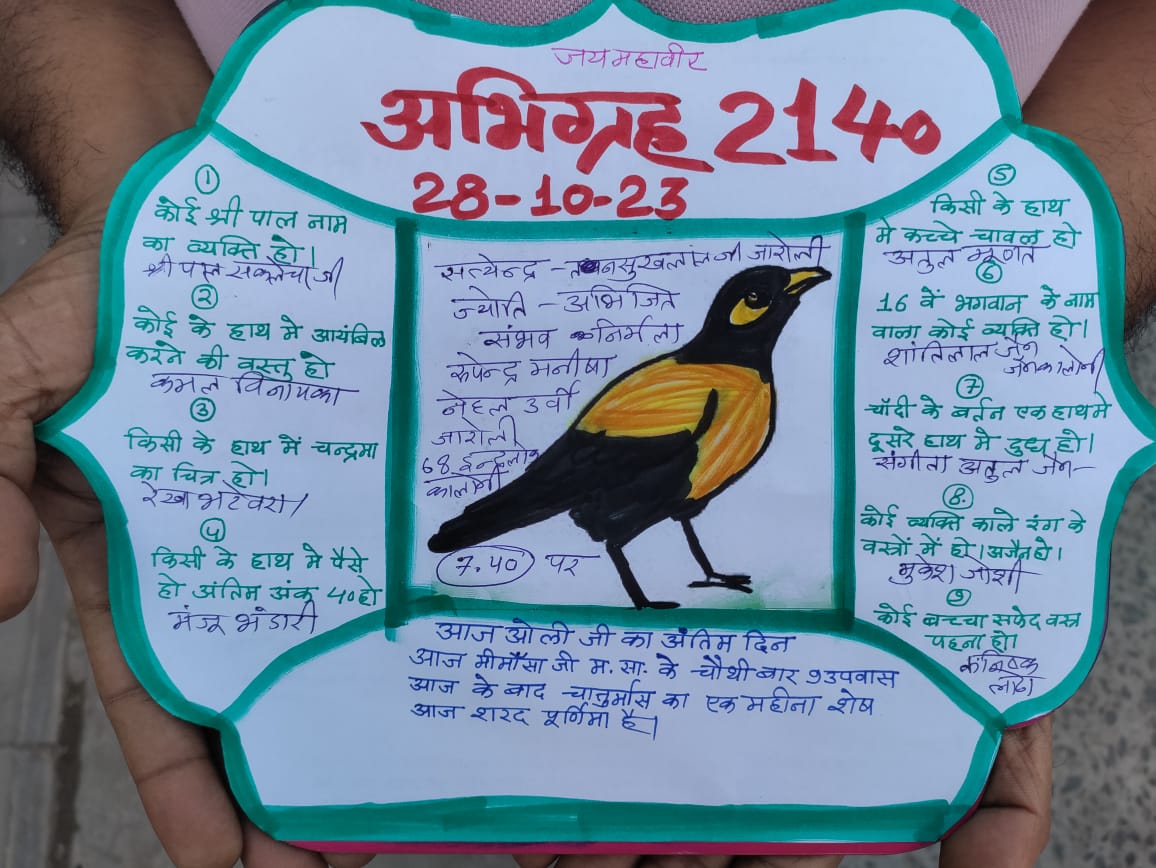 जय महावीर
अभिग्रह 2140
28-10-23
①
कोई श्री पाल नाम
का व्यक्ति हो।
श्री पाल सकलेचा जी
②
कोई के हाथ मे आयंबिल
करने की वस्तु हो
कमल विनायका
③
किसी के हाथ में चन्द्रमा
का चित्र हो।
रेखा भटेवरा
④
किसी के हाथ मे पैसे
हो अंतिम अंक 40 हो
मंजू भंडारी
सत्येन्द्र - सुखलालजी जारोली
ज्योति - अभिजित
संभव निर्मला
रुपेन्द्र मनीषा
नेहल उर्वी
जारोली
68 इन्द्रलोक
कालोनी
7.40 पर
⑤
किसी के हाथ
मे कच्चे चावल हो
अतुल मूणत
⑥
16 वें भगवान के नाम
वाला कोई व्यक्ति हो।
शांतिलाल जैन
जनकालोनी
⑦
चाँदी के बर्तन एक हाथ मे
दूसरे हाथ मे दुध हो।
संगीता अतुल जैन
⑧
कोई व्यक्ति काले रंग के
वस्त्रों में हो। अजैन हो।
मुकेश जोशी
⑨
कोई बच्चा सफेद वस्त्र
पहना हो।
आज ओली जी का अंतिम दिन
आज मीमाँसा जी म.सा. के चौथी बार 9 उपवास
आज के बाद चातुर्मास का एक महीना शेष
आज शरद पूर्णिमा है।